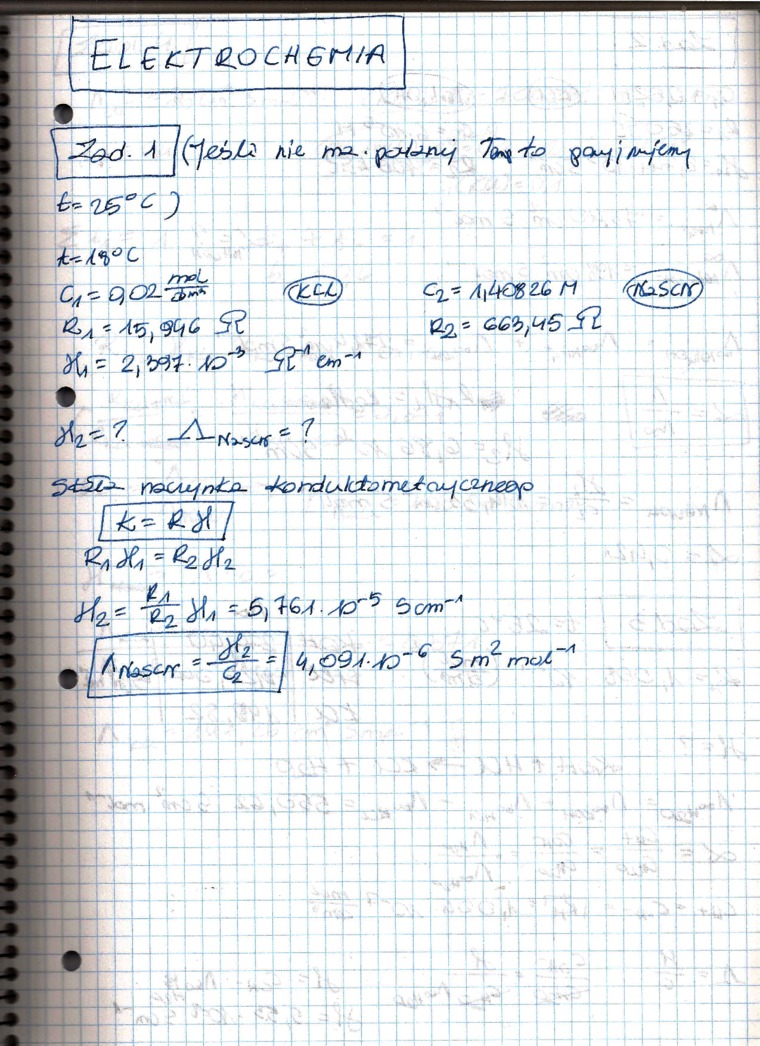 ELEKTROCHEMIA
Zad. 1 (Jeśli nie ma podanej Temp to przyjmujemy
t=25°C)
t=18°C
C₁=0,02 mol/dm³ KCl C₂=1,40826 M NaSCN
R₁=15,946 Ω R₂=663,45 Ω
ϰ₁=2,397·10⁻³ Ω⁻¹cm⁻¹
ϰ₂=? Λ NaSCN=?
Stała naczynka konduktometrycznego
k=Rϰ
R₁ϰ₁=R₂ϰ₂
ϰ₂=R₁/R₂ ϰ₁=5,761·10⁻⁵ Scm⁻¹
Λ NaSCN=ϰ₂/C₂=4,091·10⁻⁶ Sm²mol⁻¹